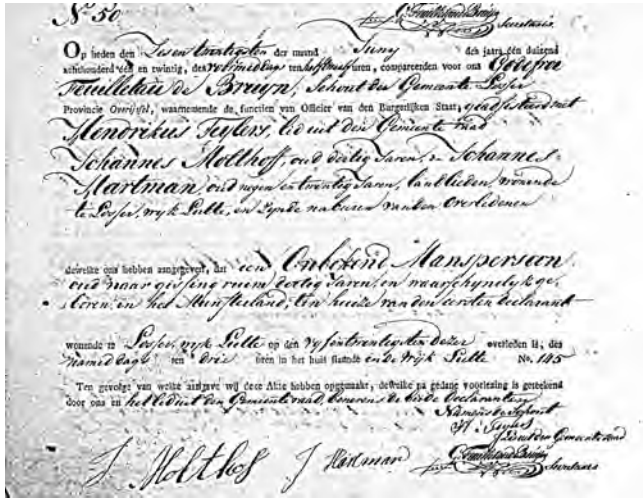 Nº 50
Secretaris
Op heden den Zesentwintigsten der maand Juny des jaars één duizend
achthonderd één en twintig, des voormiddags ten half twaalf uren, compareerden voor ons Godefroi
Feuilletau de Bruyn, Schout der Gemeente Losser
Provincie Overijssel, waarnemende de functien van Officier van den Burgerlijken Staat, geadsisteerd met
Hendrikus Teylers, lid uit den Gemeente raad
Johannes Molthoff, oud dertig Jaren, & Johannes
Hartman, oud negen en twentig Jaren, landlieden, wonende
te Losser, wyk Lutte, en zynde naburen van den Overledenen
dewelke ons hebben aangegeven, dat een Onbekend Manspersoon
oud naar gissing ruim dertig Jaren, en waarschynelyk ge-
boren in het Munsterland, ten huize van den eersten declarant
wonende te Losser, wyk Lutte op den vyfentwentigsten dezer overleden is, des
namiddags ten drie uren in het huis staande in de Wyk Lutte No. 145
Ten gevolge van welke aangave wij deze Akte hebben opgemaakt, dewelke na gedane voorlezing is geteekend
door ons en het lid uit den Gemeente raad, benevens de beide Declaranten
Namens de Schout
H. Teylers
Lid uit den Gemeente raad
J Molthof J Hartman
Secretaris